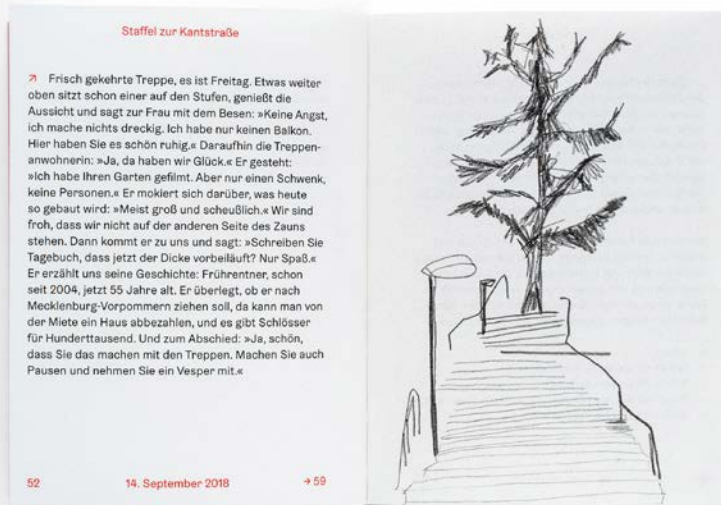 Staffel zur Kantstraße
↗ Frisch gekehrte Treppe, es ist Freitag. Etwas weiter
oben sitzt schon einer auf den Stufen, genießt die
Aussicht und sagt zur Frau mit dem Besen: »Keine Angst,
ich mache nichts dreckig. Ich habe nur keinen Balkon.
Hier haben Sie es schön ruhig.« Daraufhin die Treppen-
anwohnerin: »Ja, da haben wir Glück.« Er gesteht:
»Ich habe Ihren Garten gefilmt. Aber nur einen Schwenk,
keine Personen.« Er mokiert sich darüber, was heute
so gebaut wird: »Meist groß und scheußlich.« Wir sind
froh, dass wir nicht auf der anderen Seite des Zauns
stehen. Dann kommt er zu uns und sagt: »Schreiben Sie
Tagebuch, dass jetzt der Dicke vorbeiläuft? Nur Spaß.«
Er erzählt uns seine Geschichte: Frührentner, schon
seit 2004, jetzt 55 Jahre alt. Er überlegt, ob er nach
Mecklenburg-Vorpommern ziehen soll, da kann man von
der Miete ein Haus abbezahlen, und es gibt Schlösser
für Hunderttausend. Und zum Abschied: »Ja, schön,
dass Sie das machen mit den Treppen. Machen Sie auch
Pausen und nehmen Sie ein Vesper mit.«
52 14. September 2018 → 59